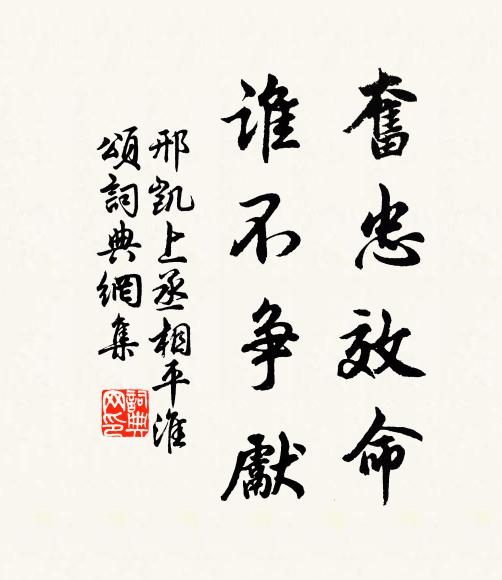 奮忠效命
誰不爭獻
邢凱上丞相平淮
頌詞典網集
詞典
网印